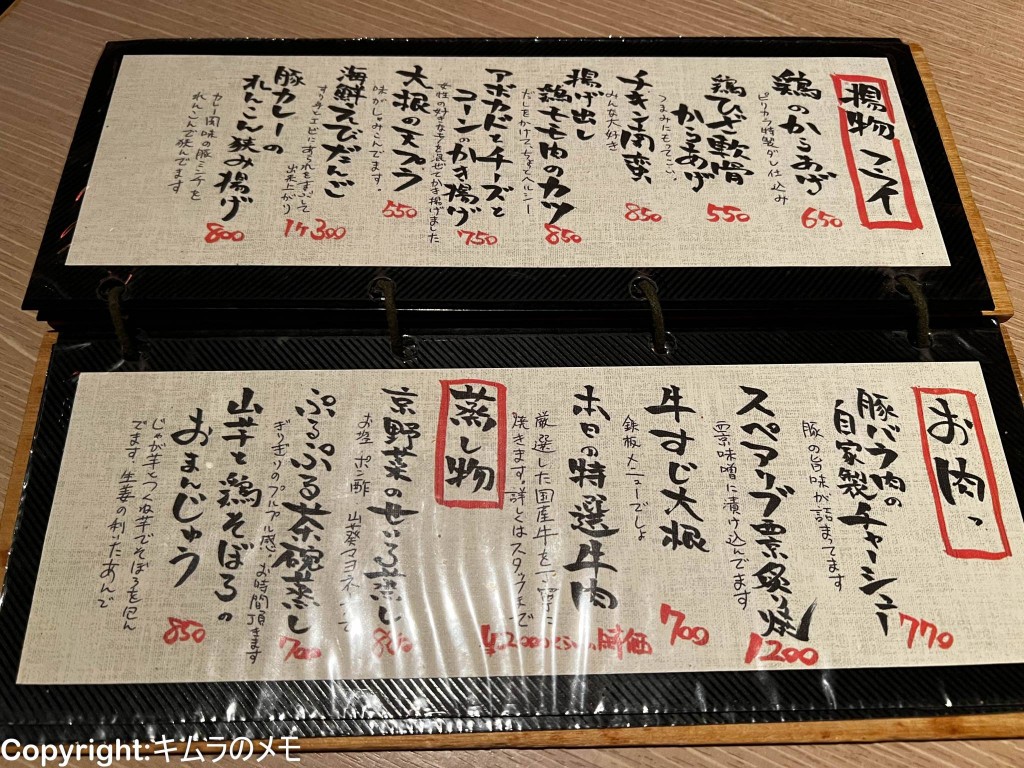 揚物コーナー
鶏のからあげ
ピリカラ特製ダレ仕込み
650
鶏ひざ軟骨
からあげ
つまみにもってこい。
550
チキン南蛮
みんな大好き
850
揚げ出し
鶏モモ肉のカツ
だしをかけて、ちょっとヘルシー
850
アボカドとチーズと
コーンのかき揚げ
女性の好きな子を混ぜてかき揚げました
750
大根の天プラ
味がじゅみこんでます。
550
海鮮えびだんご
すり身とエビにあられをまぶして
出来上がり
1ケ300
豚カレーの
れんこん狭み揚げ
カレー風味の豚ミンチを
れんこんで狭んでます
800
お肉っ
豚バラ肉の
自家製チャーシュー
豚の旨味が詰まってます
770
スペアリブ雲炙り焼
雲味噌に漬け込んでます
1200
牛すじ大根
鉄板メニューでしょ
700
本日の特選牛肉
厳選した国産牛を丁寧に
焼きます。詳しくはスタッフまで
¥2000くらい。時価
蒸し物
京野菜のせいろ蒸し
お塩 ポン酢 山葵マヨネーズで
880
ぷるぷる茶碗蒸し
ぎりぎりのプルプル感。お時間頂きます
700
山芋と鶏そぼろの
おまんじゅう
じゃが芋とつくね芋でそぼろを包ん
でます 生姜の利いたあんで
850
Copyright:キムラのメモ